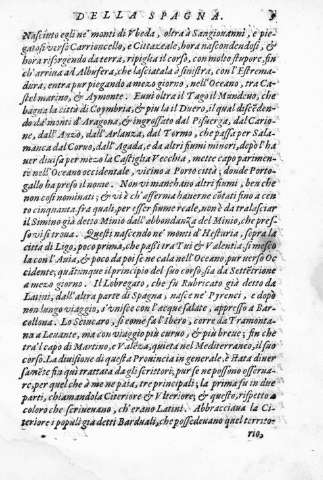 DELLA SPAGNA. 3
Nascinto egli ne' monti di Vbeda, oltra à Sangionanni, e pie
gatosi verso Carrioncello, e Cittareale, hora nascendosi, &
hora risorgendo da terra, ripiglia il corso, con molto stupore, fin
ch'arriua ad Albufera, che lasciatala à sinistra, con l'Estrema-
dura, entra pur piegando a mezo giorno, nell'Oceano, tra Ca-
stelmarino, & Aymonte. Euui oltra il Tago il Mundeuo, che
bagna la città di Coymbria, & piu la il Duero, il qual discēden-
do da' monti d'Aragona, & ingrossato dal Pisuerga, dal Cario-
ne, dall'Anzo, dall'Arlanza, dal Tormo, che passa per Sala-
manca dal Coruo, dall'Agada, e da altri fiumi minori, depò l'ha
uer diuisa per mezo la Castiglia Vecchia, mette capo parimen-
ti nell'Oceano occidentale, vicino a Porto città, donde Porto-
gallo ha preso il nome. Non vi manchano altri fiumi, ben che
non così nominati; & vi è ch'afferma hauerne cōtati fino a cen
to cinquanta, fra quali, per esser fiume reale, non è da tralasciar
il Simino già detto Minio dall'abbondanza del Minio, che pres-
so vi si troua. Questi nascendo ne' monti d'Hesturia, sopra la
città di Ligo, poco prima, che passi tra Tui & Valentia si mesco
la con l'Auia, & poco da poi se ne cala nell'Oceano, pur verso Oc
cidente; quātunque il principio del suo corso, sia da Settētrione
a mezo giorno. Il Lobregato, che fu Rubricato già detto da
Latini, dall'altra parte di Spagna, nasce ne' Pyrenei, e dopò
non lungo viaggio, s'vnisce con l'acque salate, appresso à Bar-
cellona. Lo Scucaro, si come fa l'Ibero, corre da Tramonta-
na a Leuante, ma con viaggio più curuo, & più breue; fin che
tra'l capo di Martino, e Valēza, quieta nel Mediterraneo, il suo
corso. La diuisione di questa Prouincia in generale, è stata diuer
samēte fin qui trattata da gli scrittori; pur se ne possono osserua-
re, per quel che à me ne paia, tre principali; la prima fu in due
parti, chiamandola Citeriore & Vlteriore; & questo, rispetto a
coloro che scriueuano, ch'erano Latini. Abbracciaua la Ci-
teriore i populi già detti Barduali, che possedeuano quel territo-
rio,